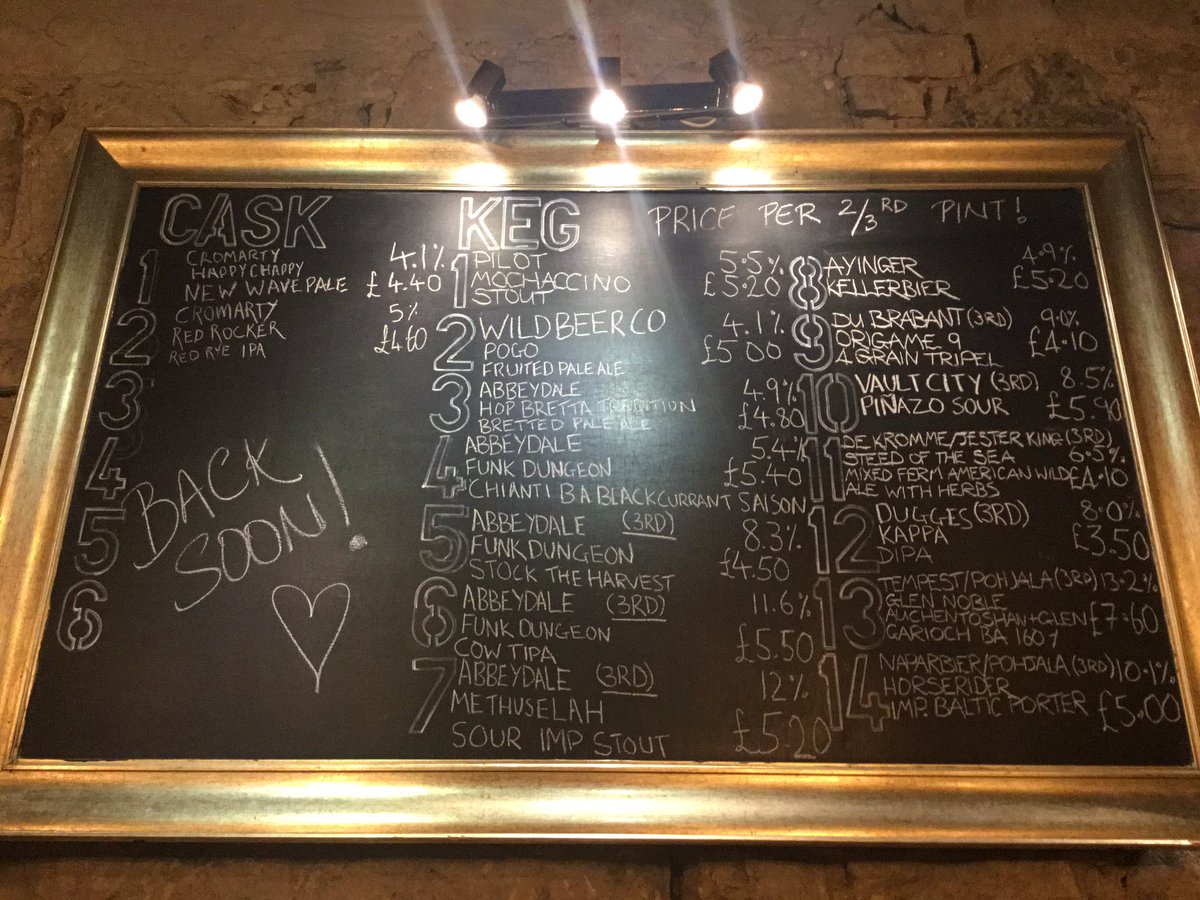 CASK
1 CROMARTY 4.1%
HAPPY CHAPPY
NEW WAVE PALE £4.40
2 CROMARTY 5%
RED ROCKER £4.60
RED RYE IPA
3
4
5
6
BACK
SOON!
KEG PRICE PER 2/3RD PINT!
1 PILOT 5.5%
MOCHACCINO £5.20
STOUT
2 WILD BEER CO 4.1%
POGO £5.00
FRUITED PALE ALE
3 ABBEYDALE 4.9%
HOP BRETTA TRADITION £4.80
BRETTED PALE ALE
4 ABBEYDALE 5.4%
FUNK DUNGEON £5.40
CHIANTI BA BLACKCURRANT SAISON
5 ABBEYDALE (3RD) 8.3%
FUNK DUNGEON £4.50
STOCK THE HARVEST
6 ABBEYDALE (3RD) 11.6%
FUNK DUNGEON £5.50
COW TIPA
7 ABBEYDALE (3RD) 12%
METHUSELAH £5.20
SOUR IMP STOUT
8 AYINGER 4.9%
KELLERBIER £5.20
9 DU BRABANT (3RD) 9.0%
ORIGAME 9 £4.10
4 GRAIN TRIPEL
10 VAULT CITY (3RD) 8.5%
PIÑAZO SOUR £5.90
11 DE KROMME/JESTER KING (3RD)
STEED OF THE SEA 6.5%
MIXED FERM AMERICAN WILD £4.10
ALE WITH HERBS
12 DUGGES (3RD) 8.0%
KAPPA £3.50
DIPA
13 TEMPEST/POHJALA (3RD) 13.2%
GLEN NOBLE
AUCHENTOSHAN + GLEN £7.60
GARIOCH BA
14 NAPARBIER/POHJALA (3RD) 10.1%
HORSERIDER
IMP. BALTIC PORTER £5.00